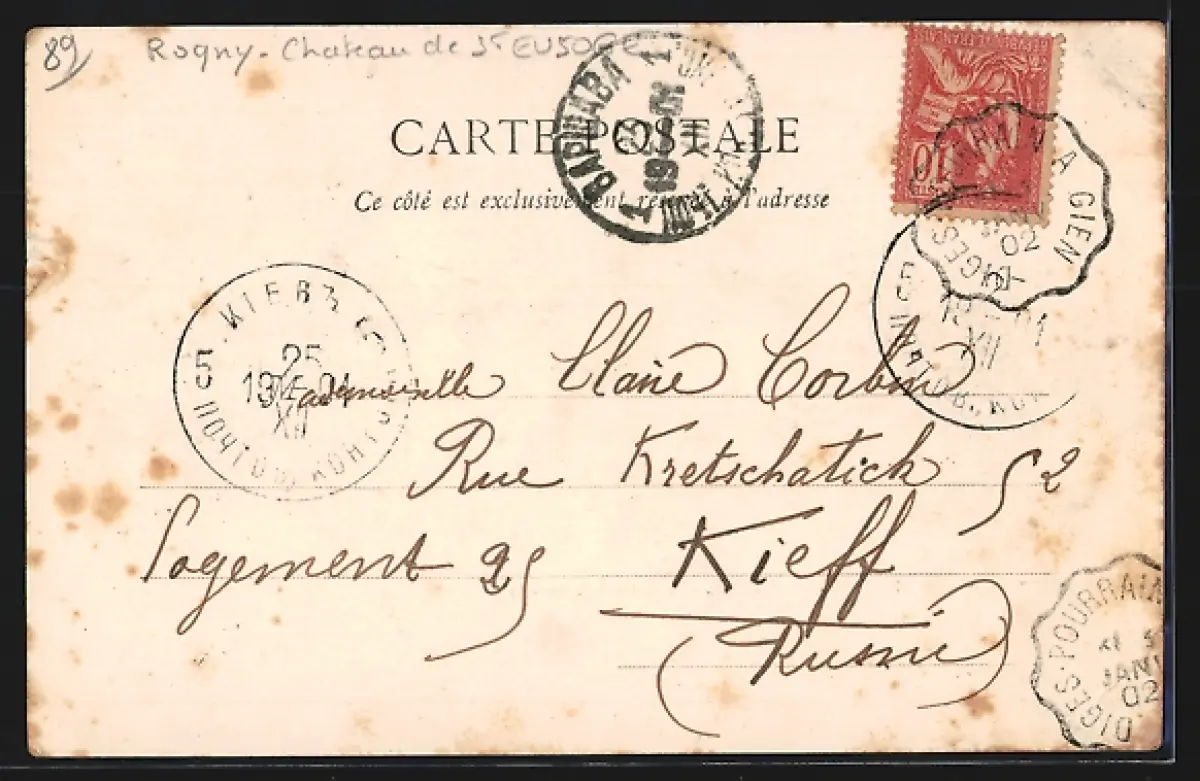 89
Rogny - Chateau de St EUSOGE
CARTE POSTALE
Ce côté est exclusivement réservé à l'adresse
RÉPUBLIQUE FRANÇAISE
10
ВАРШАВА
1
A GIEN
DIGES
02
КІЕВЪ
5
25
19 - 01
XII
ПОЧТОВ. КОНТ
5
XII
Mademoiselle Claire Corbin
Rue Kretschatick 52
Logement 25 Kieff
(Russie)
DIGES-POURRAIN
JANV
02